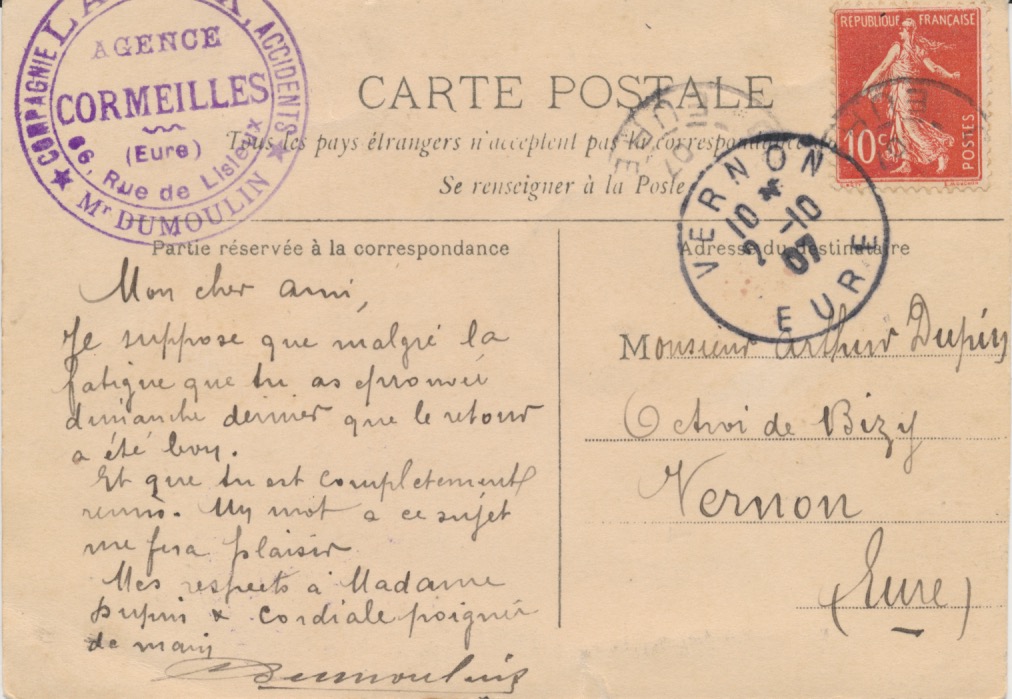 COMPAGNIE LA ACCIDENTS
AGENCE
CORMEILLES
(Eure)
66, Rue de Lisieux
Mr DUMOULIN
CARTE POSTALE
Tous les pays étrangers n'acceptent pas la correspondance
Se renseigner à la Poste
REPUBLIQUE FRANÇAISE
10c
POSTES
VERNON
10 *
2 -10
07
EURE
EURE
07
Partie réservée à la correspondance
Adresse du destinataire
Mon cher ami,
Je suppose que malgré la
fatigue que tu as eprouvée
dimanche dernier que le retour
a été bon.
Et que tu est completement
remis. Un mot a ce sujet
me fera plaisir
Mes respects à Madame
Dupuis & cordiale poignée
de main
Dumoulin
Monsieur Arthur Dupuis
Octroi de Bizy
Vernon
(Eure)